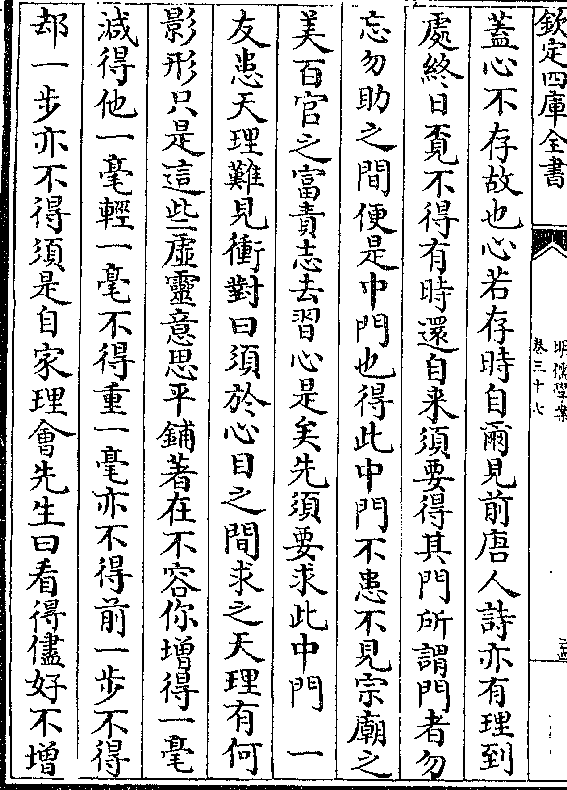 欽定四庫全書
明儒學案
卷三十七
蓋心不存故也心若存時自爾見前唐人詩亦有理到
處終日覔不得有時還自来須要得其門所謂門者勿
忘勿助之間便是中門也得此中門不患不見宗廟之
美百官之富責志去習心是矣先須要求此中門　一
友患天理難見衝對曰須於心目之間求之天理有何
影形只是這些虛靈意思平鋪著在不容你增得一毫
減得他一毫輕一毫不得重一毫亦不得前一步不得
却一步亦不得須是自家理會先生曰看得儘好不增